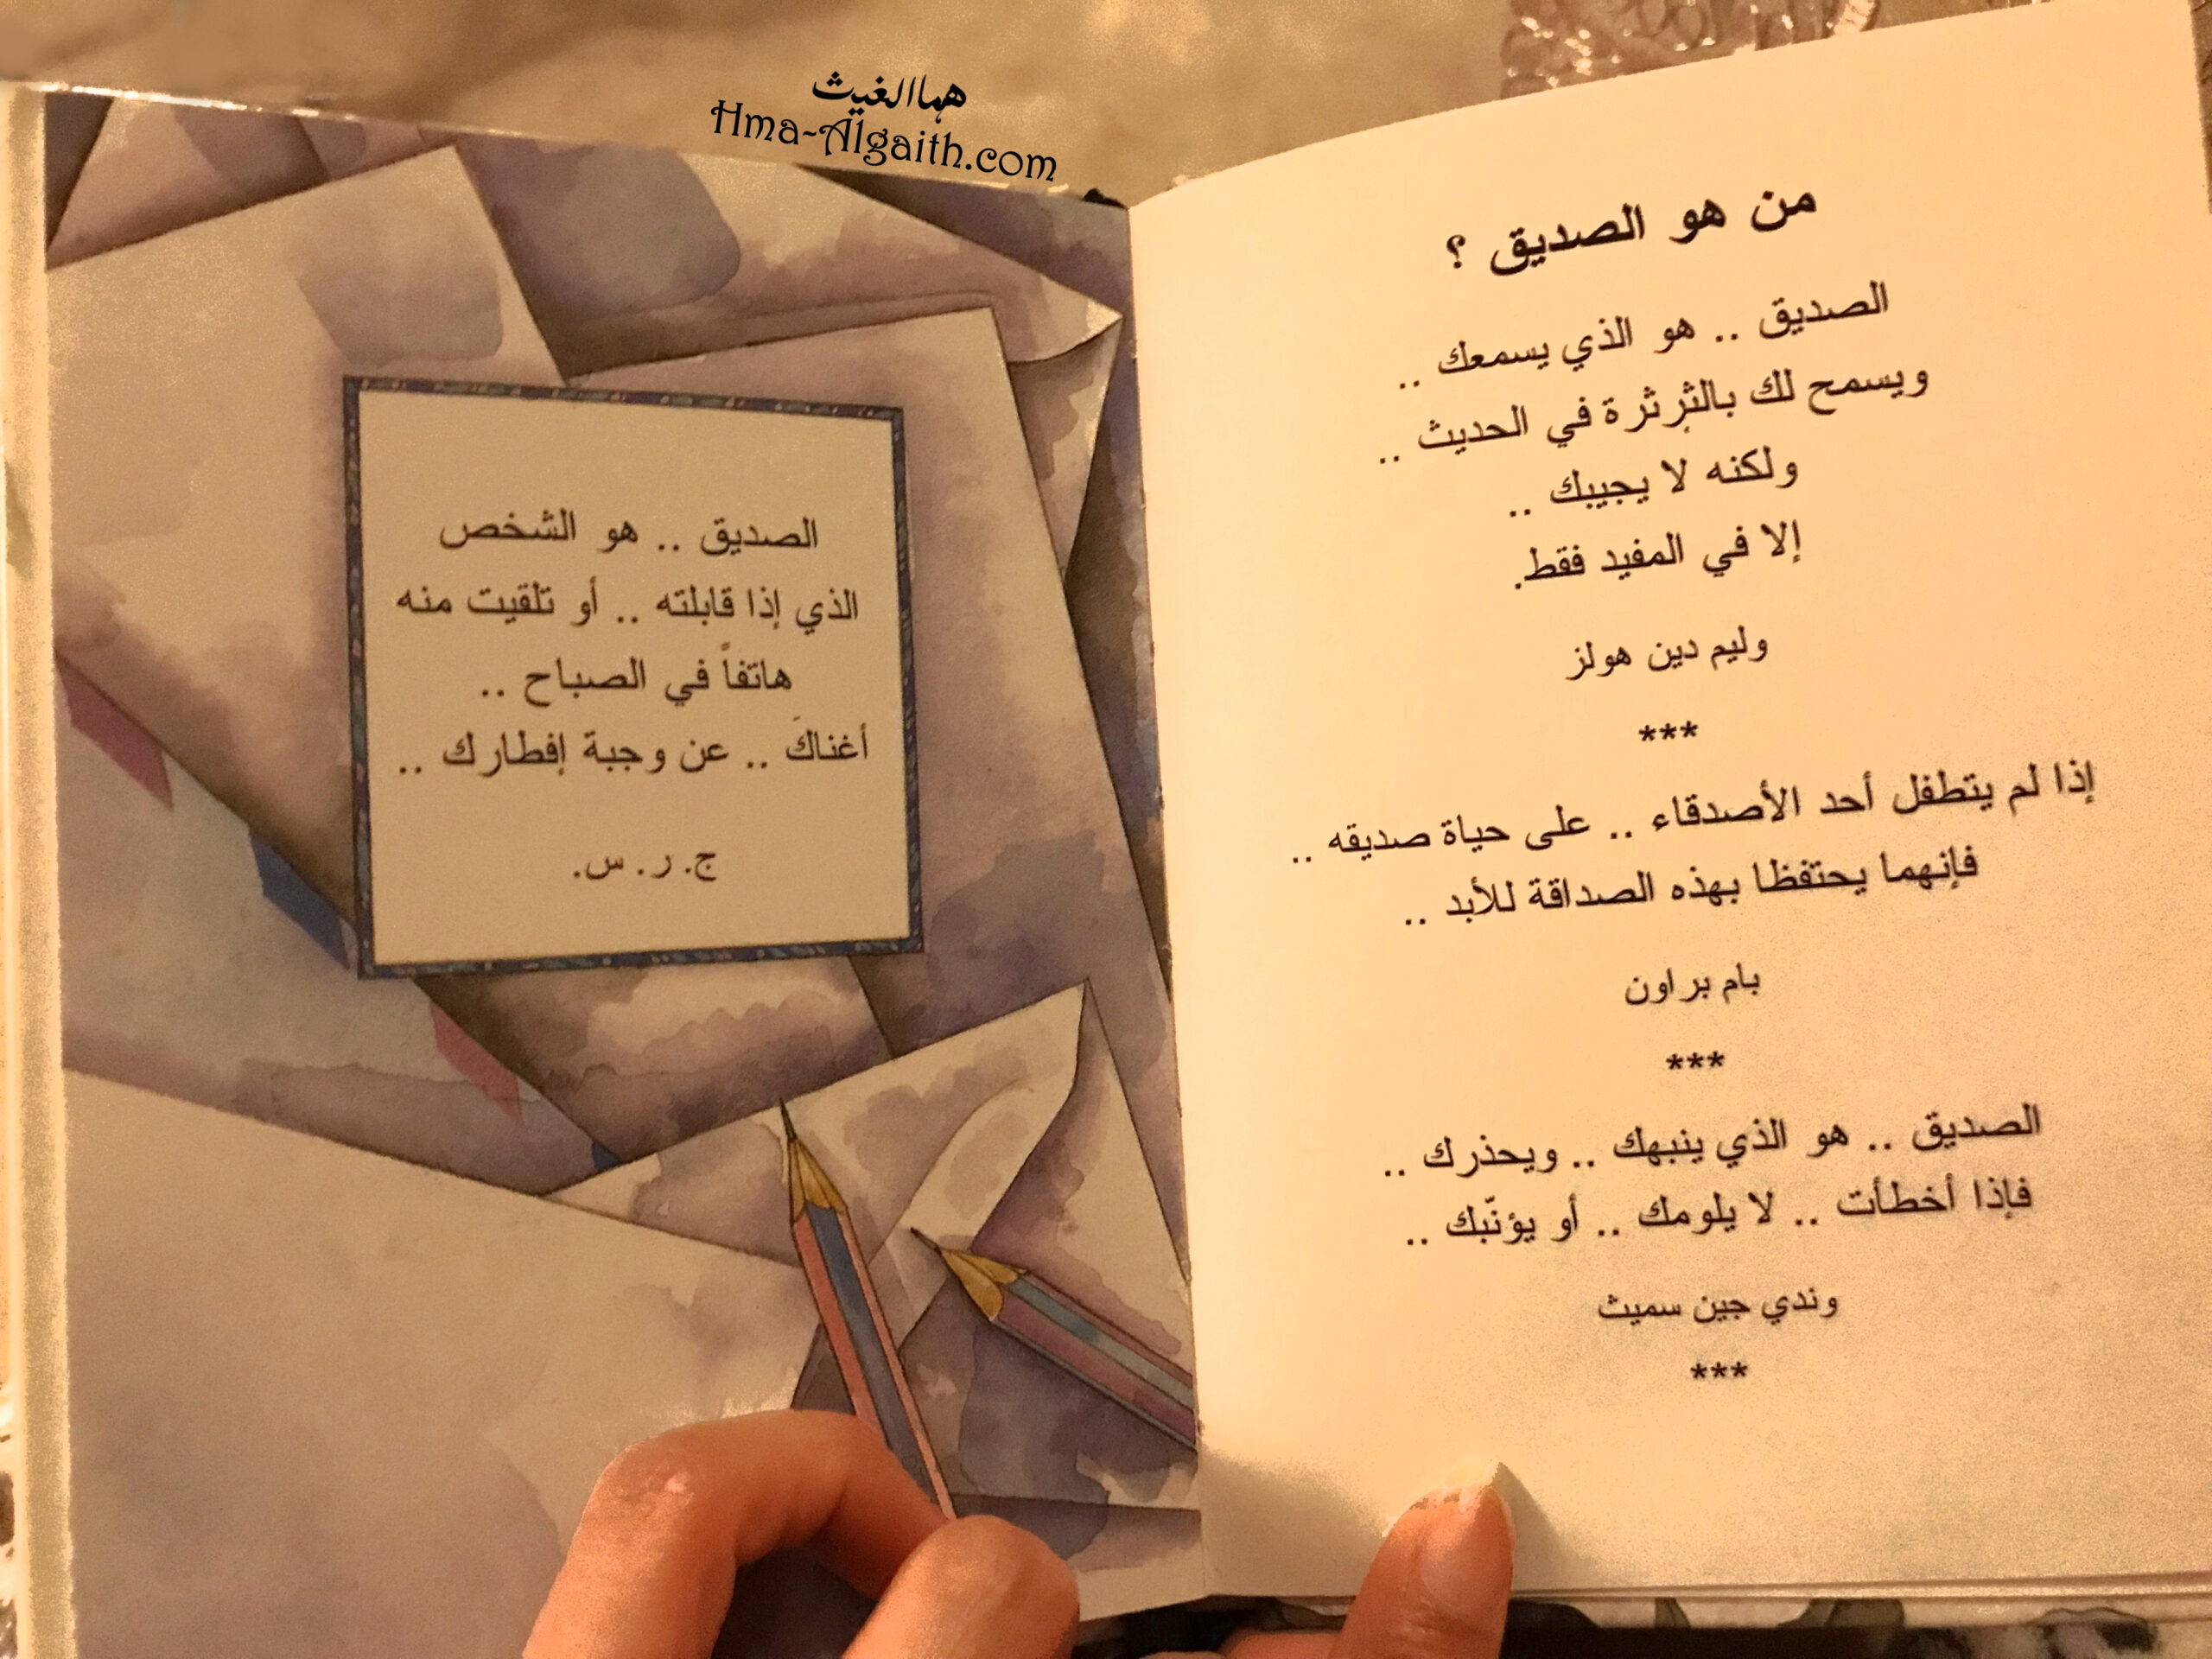 هماالغيث
Hma-Algaith.com
من هو الصديق ؟
الصديق .. هو الذي يسمعك ..
ويسمح لك بالثرثرة في الحديث ..
ولكنه لا يجيبك ..
إلا في المفيد فقط.
وليم دين هولز
***
إذا لم يتطفل أحد الأصدقاء .. على حياة صديقه ..
فإنهما يحتفظا بهذه الصداقة للأبد ..
بام براون
***
الصديق .. هو الذي ينبهك .. ويحذرك ..
فإذا أخطأت .. لا يلومك .. أو يؤنّبك ..
وندي جين سميث
***
الصديق .. هو الشخص
الذي إذا قابلته .. أو تلقيت منه
هاتفاً في الصباح ..
أغناكَ .. عن وجبة إفطارك ..
ج. ر. س.